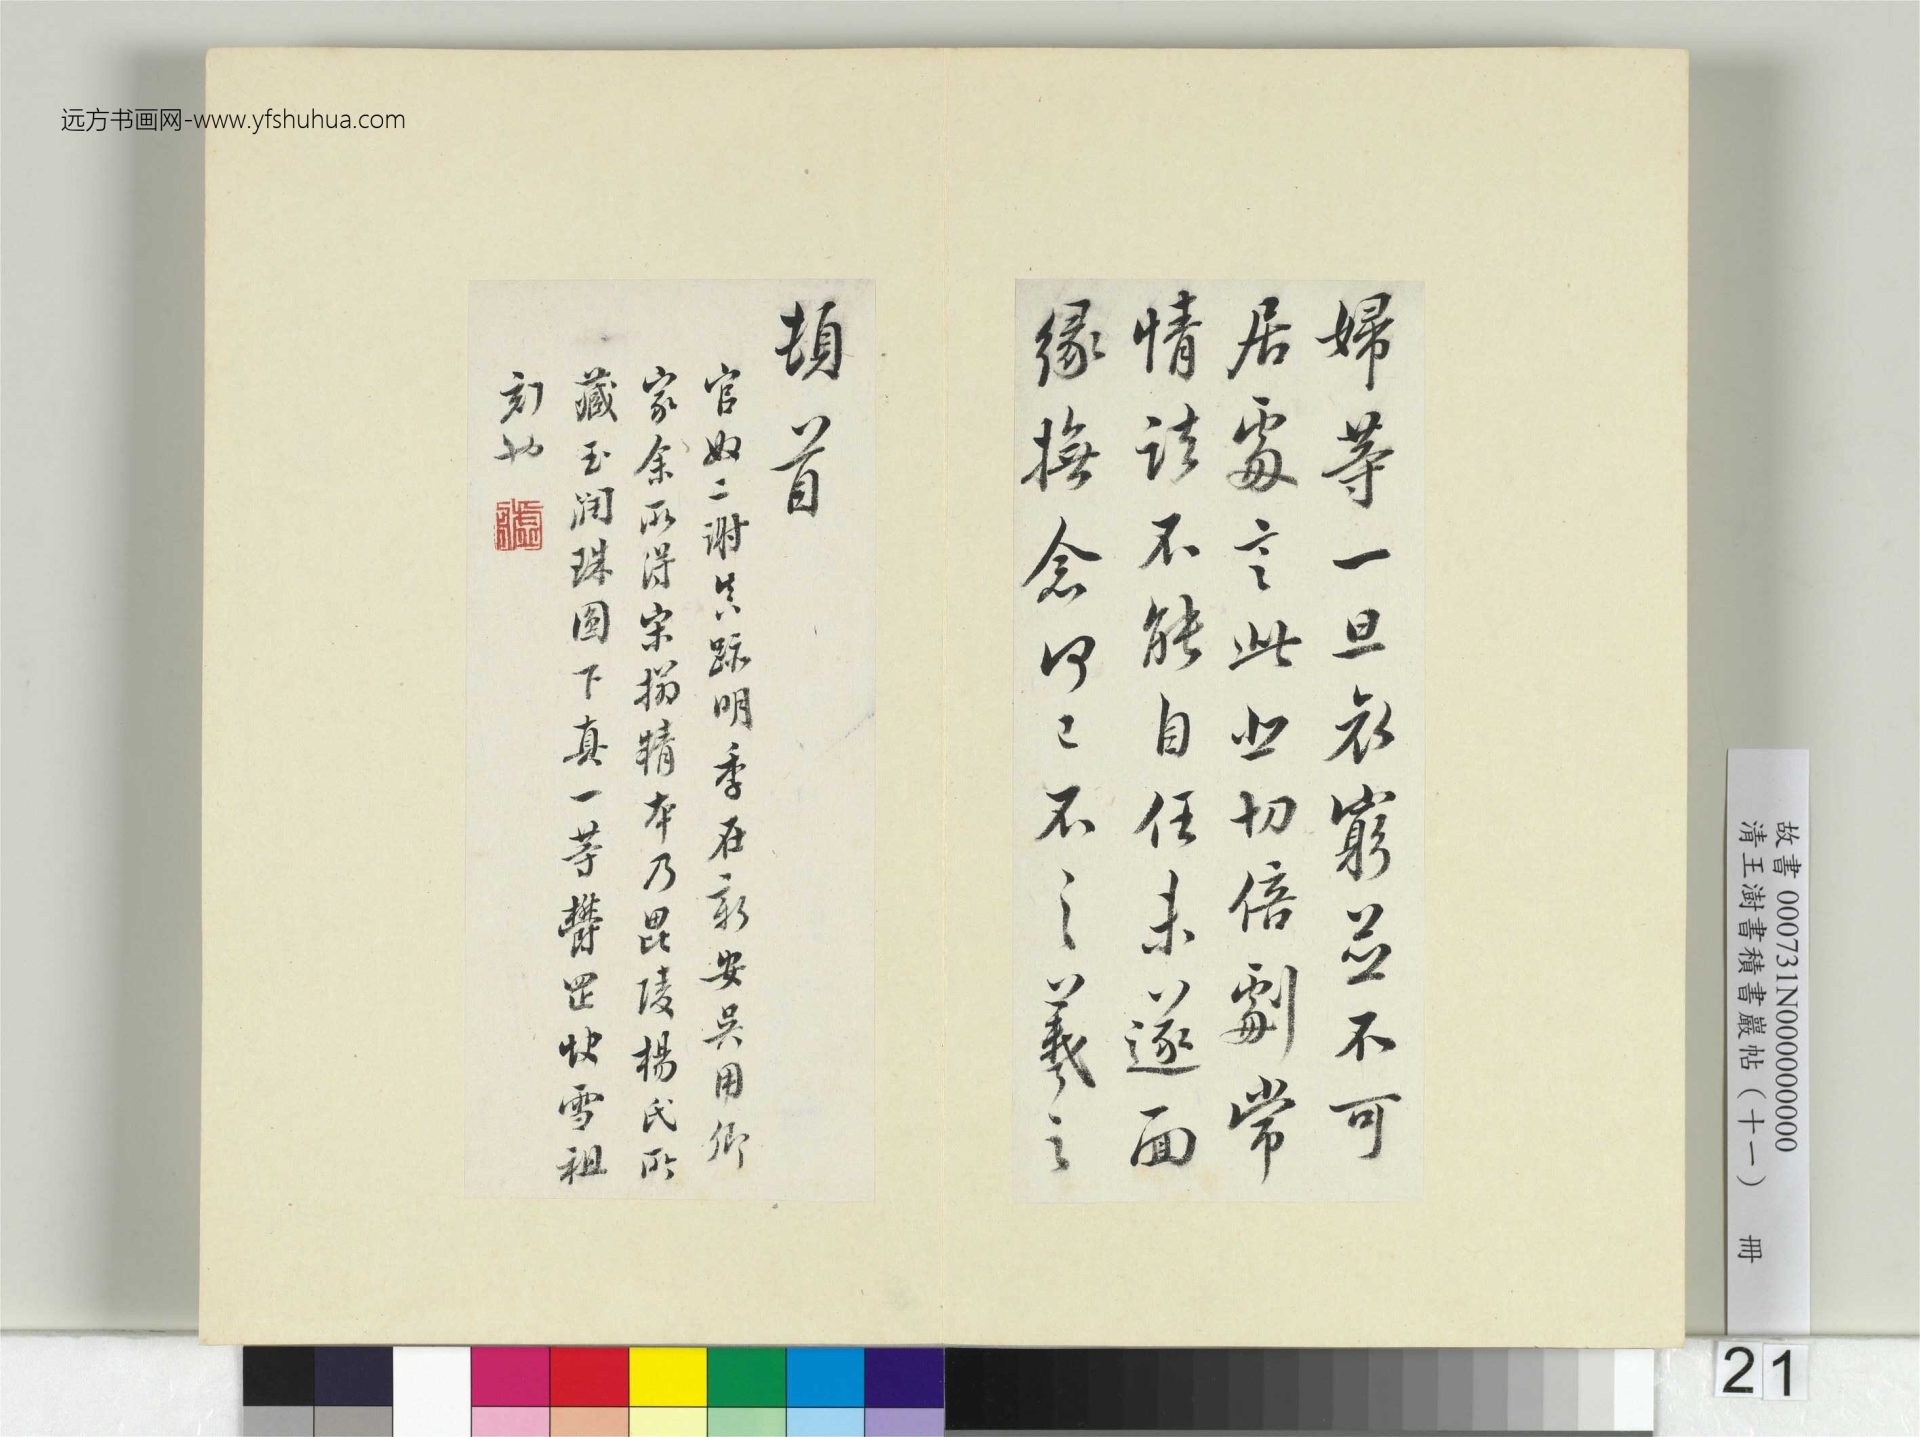 远方书画网-www.yfshuhua.com
婦等一旦哀窮並不可
居處言此悲切倍劇常
情諸不能自任未遂面
緣撫念何已不一一羲之
頓首
官奴二謝真跡明季在新安吳用卿
家余所得宋搨精本乃毘陵楊氏所
藏玉潤珠圓下真一等鬱岡快雪祖
刻也
故書000731N000000000
清王澍書積書巖帖(十一) 冊
21